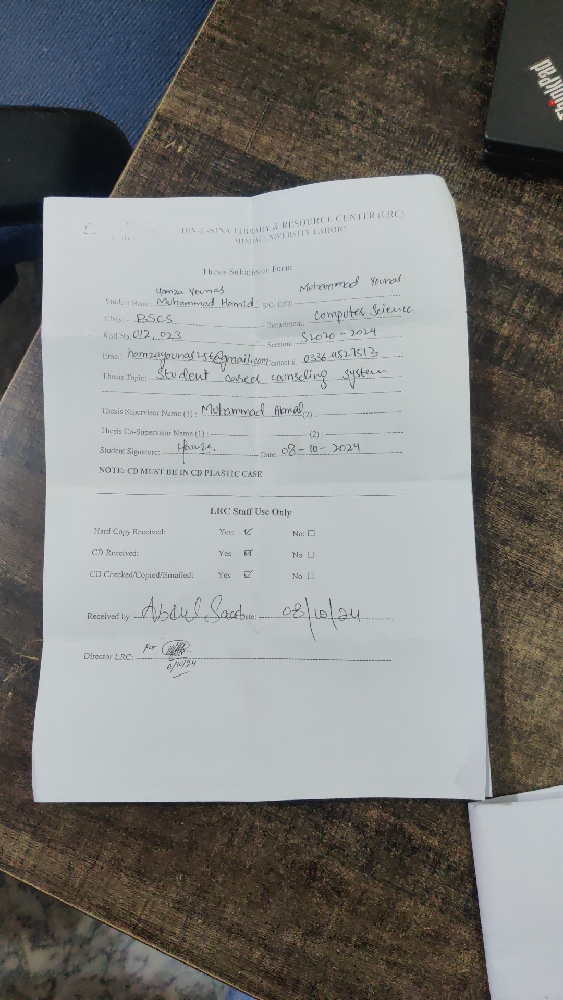 ThinkPad
IBN-E-SINA LIBRARY & RESOURCE CENTER (LRC)
MINHAJ UNIVERSITY LAHORE
Thesis Submission Form
Hamza Younas Muhammad Younas
Student Name: Muhammad Hamid S/O, D/O:
Class: BSCS Department: Computer Science
Roll No. 012, 023 Session: S2020 - 2024
Email: hamzayounas256@gmail.com Contact #: 0336 4527513
Thesis Topic: Student career counseling system
Thesis Supervisor Name (1): Muhammad Akmal (2)
Thesis Co-Supervisor Name (1): (2)
Student Signature: Hamza. Date: 08-10-2024
NOTE: CD MUST BE IN CD PLASTIC CASE
LRC Staff Use Only
Hard Copy Received: Yes: ☑ No: ☐
CD Received: Yes ☑ No ☐
CD Checked/Copied/Emailed: Yes ☑ No ☐
Received by: Abdul Saeed Date: 08/10/24
Director LRC: For